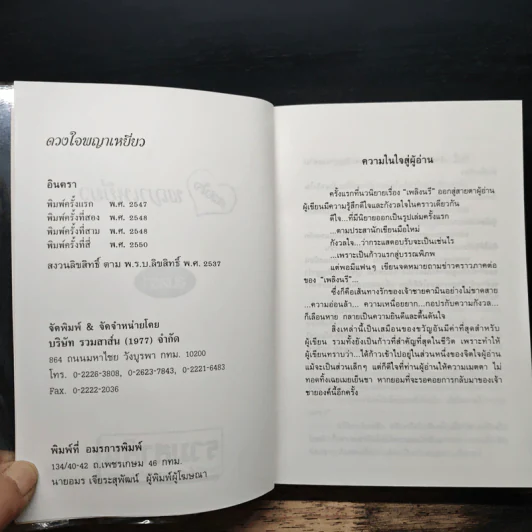 ดวงใจพญาเหยี่ยว
อินตรา
พิมพ์ครั้งแรก พ.ศ. 2547
พิมพ์ครั้งที่สอง พ.ศ. 2548
พิมพ์ครั้งที่สาม พ.ศ. 2548
พิมพ์ครั้งที่สี่ พ.ศ. 2550
สงวนลิขสิทธิ์ ตาม พ.ร.บ.ลิขสิทธิ์ พ.ศ. 2537
จัดพิมพ์ & จัดจำหน่ายโดย
บริษัท รวมสาส์น (1977) จำกัด
864 ถนนมหาไชย วังบูรพา กทม. 10200
โทร. 0-2226-3808, 0-2623-7843, 0-2221-6483
Fax. 0-2222-2036
พิมพ์ที่ อมรการพิมพ์
134/40-42 ถ.เพชรเกษม 46 กทม.
นายอมร เจียระสุพัฒน์ ผู้พิมพ์ผู้โฆษณา
ความในใจสู่ผู้อ่าน
ครั้งแรกที่นวนิยายเรื่อง "เพลิงนรี" ออกสู่สายตาผู้อ่าน
ผู้เขียนมีความรู้สึกดีใจและกังวลใจในคราวเดียวกัน
ดีใจ...ที่มีนิยายออกเป็นรูปเล่มครั้งแรก
...ตามประสานักเขียนมือใหม่
กังวลใจ...ว่ากระแสตอบรับจะเป็นเช่นไร
...เพราะเป็นก้าวแรกสู่บรรณพิภพ
แต่พอมีแฟนๆ เขียนจดหมายถามข่าวคราวภาคต่อ
ของ "เพลิงนรี"...
ซึ่งก็คือเส้นทางรักของเจ้าชายคามินอย่างไม่ขาดสาย
...ความอ่อนล้า... ความเหนื่อยยาก...กอปรกับความกังวล...
ก็เลือนหาย กลายเป็นความยินดีและตื้นตันใจ
สิ่งเหล่านี้เป็นเสมือนของขวัญอันมีค่าที่สุดสำหรับ
ผู้เขียน รวมทั้งยังเป็นก้าวที่สำคัญที่สุดในชีวิต เพราะทำให้
ผู้เขียนทราบว่า...ได้ก้าวเข้าไปอยู่ในส่วนหนึ่งของจิตใจผู้อ่าน
แม้จะเป็นส่วนเล็กๆ แต่ก็ดีใจที่ท่านผู้อ่านให้ความเมตตา ไม่
ทอดทิ้งเฉยเมยเย็นชา หากยอมที่จะรอคอยการกลับมาของเจ้า
ชายองค์นี้อีกครั้ง